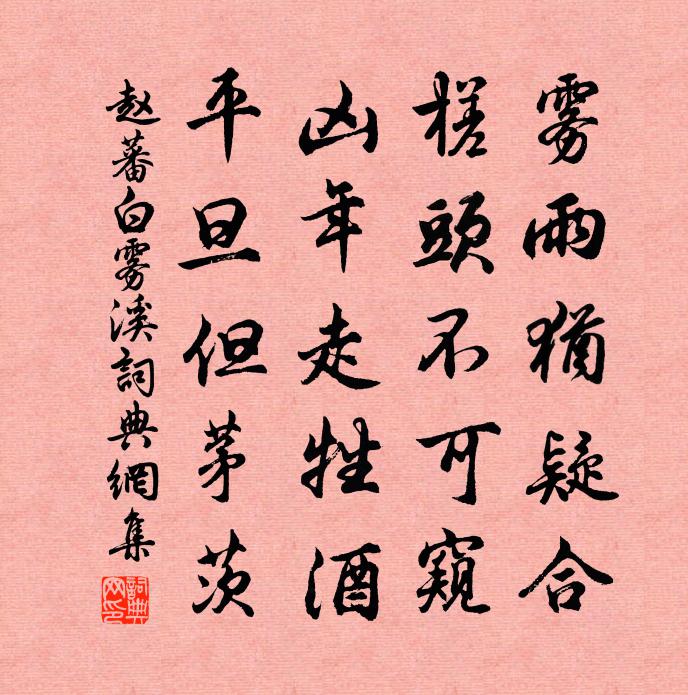 雾雨猶疑合
槎頭不可窺
凶年走牲酒
平旦但茅茨
赵蕃白雾溪詞典網集
詞典网印